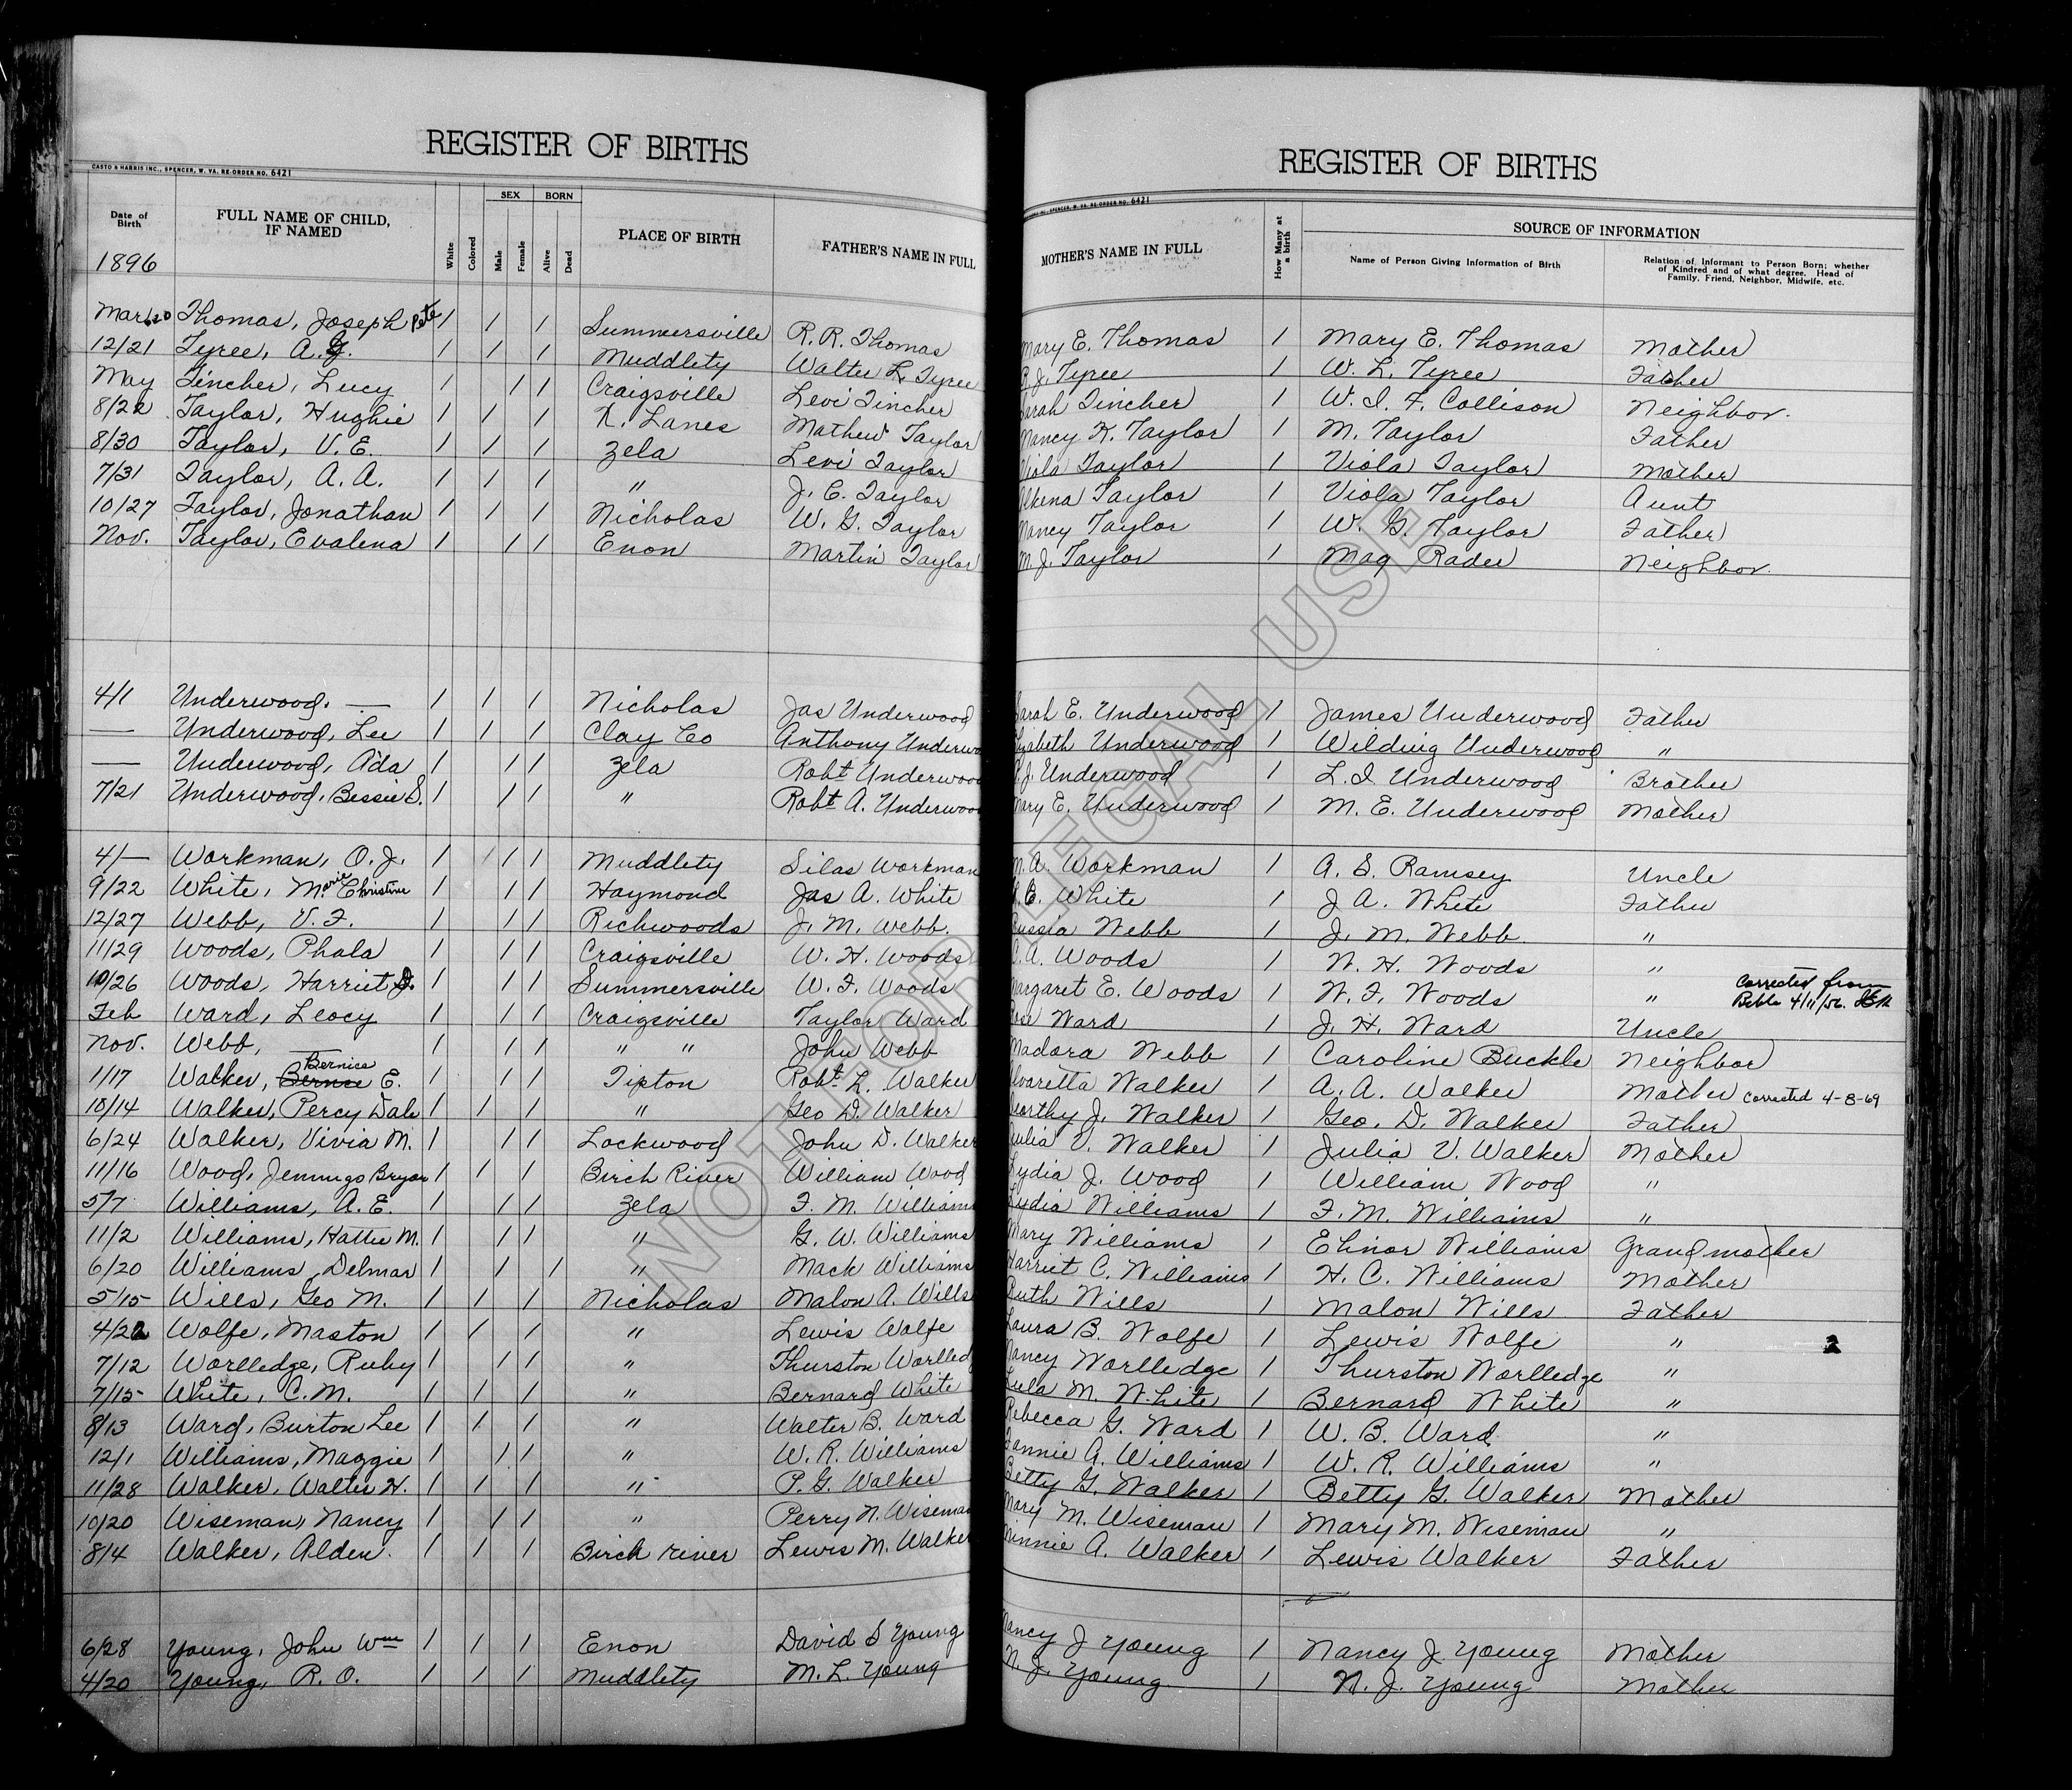 REGISTER OF BIRTHS
CASTO & HARRIS INC., SPENCER, W. VA. RE-ORDER NO. 6421
Date of Birth FULL NAME OF CHILD, IF NAMED White Colored SEX Male Female BORN Alive Dead PLACE OF BIRTH FATHER'S NAME IN FULL
1896
Mar 20 Thomas, Joseph Pete 1 1 1 Summersville R. R. Thomas
12/21 Tyree, A. G. 1 1 1 Muddlety Walter L. Tyree
May Tincher, Lucy 1 1 1 Craigsville Levi Tincher
8/22 Taylor, Hughie 1 1 1 K. Lanes Mathew Taylor
8/30 Taylor, V. E. 1 1 1 Zela Levi Taylor
7/31 Taylor, A. A. 1 1 1 " J. C. Taylor
10/27 Taylor, Jonathan 1 1 1 Nicholas W. G. Taylor
Nov. Taylor, Evalena 1 1 1 Enon Martin Taylor
4/1 Underwood. — 1 1 1 Nicholas Jas Underwood
— Underwood, Lee 1 1 1 Clay Co Anthony Underwo
— Underwood, Ada 1 1 1 Zela Robt Underwood
7/21 Underwood, Bessie S. 1 1 1 " Robt A. Underwood
4/— Workman, O. J. 1 1 1 Muddlety Silas Workman
9/22 White, Marie Christine 1 1 1 Haymond Jas A. White
12/27 Webb, V. F. 1 1 1 Richwoods J. M. Webb.
11/29 Woods, Phala 1 1 1 Craigsville W. H. Woods
10/26 Woods, Harriet J. 1 1 1 Summersville W. F. Woods
Feb Ward, Leocy 1 1 1 Craigsville Taylor Ward
Nov. Webb, — 1 1 1 " " John Webb
1/17 Walker, Bernice E. 1 1 1 Tipton Robt. L. Walker
10/14 Walker, Percy Dale 1 1 1 " Geo D. Walker
6/24 Walker, Vivia M. 1 1 1 Lockwood John D. Walker
11/16 Wood, Jennings Bryan 1 1 1 Birch River William Wood
5/7 Williams, A. E. 1 1 1 Zela F. M. Williams
11/2 Williams, Hattie M. 1 1 1 " G. W. Williams
6/20 Williams, Delmar 1 1 1 " Mack Williams
5/15 Wills, Geo M. 1 1 1 Nicholas Malon A. Wills
4/22 Wolfe, Maston 1 1 1 " Lewis Wolfe
7/12 Worlledge, Ruby 1 1 1 " Thurston Worlled
7/15 White, C. M. 1 1 1 " Bernard White
8/13 Ward, Burton Lee 1 1 1 " Walter B. Ward
12/1 Williams, Maggie 1 1 1 " W. R. Williams
11/28 Walker, Walter H. 1 1 1 " P. G. Walker
10/20 Wiseman, Nancy 1 1 1 " Perry N. Wiseman
8/4 Walker, Alden. 1 1 1 Birch river Lewis M. Walker
6/28 Young, John Wm 1 1 1 Enon David S Young
4/20 Young, R. O. 1 1 1 Muddlety M. L. Young
REGISTER OF BIRTHS
INC., SPENCER, W. VA. RE-ORDER NO. 6421
MOTHER'S NAME IN FULL How Many at a birth SOURCE OF INFORMATION
Name of Person Giving Information of Birth Relation of Informant to Person Born; whether of Kindred and of what degree, Head of Family, Friend, Neighbor, Midwife, etc.
Mary E. Thomas 1 Mary E. Thomas Mother
J. Tyree 1 W. L. Tyree Father
Sarah Tincher 1 W. I. F. Collison Neighbor.
Nancy K. Taylor 1 M. Taylor Father
Viola Taylor 1 Viola Taylor Mother
Taylor 1 Viola Taylor Aunt
Nancy Taylor 1 W. G. Taylor Father
M. J. Taylor 1 Mag Rader Neighbor.
Sarah E. Underwood 1 James Underwood Father
lizabeth Underwood 1 Wilding Underwood "
J. Underwood 1 L. I Underwood Brother
Mary E. Underwood 1 M. E. Underwood Mother
A. Workman 1 A. S. Ramsey Uncle
White 1 J A. White Father
Webb 1 J. M. Webb. "
A. Woods 1 W. H. Woods "
Margaret E. Woods 1 W. F. Woods " Corrected from Bible 4/11/56.
Rose Ward 1 J. H. Ward Uncle
Madora Webb 1 Caroline Buckle Neighbor
lvaretta Walker 1 A. A. Walker Mother Corrected 4-8-69
orthy J. Walker 1 Geo. D. Walker Father
Julia V. Walker 1 Julia V. Walker Mother
Lydia J. Wood 1 William Wood "
Lydia Williams 1 F. M. Williams "
Mary Williams 1 Elinor Williams Grandmother
Harriet C. Williams 1 H. C. Williams Mother
Ruth Wills 1 Malon Wills Father
Laura B. Wolfe 1 Lewis Wolfe " 2
Nancy Worlledge 1 Thurston Worlledge "
Lula M. White 1 Bernard White "
Rebecca G. Ward 1 W. B. Ward "
Fannie A. Williams 1 W. R. Williams "
Betty G. Walker 1 Betty G. Walker Mother
Mary M. Wiseman 1 Mary M. Wiseman "
Minnie A. Walker 1 Lewis Walker Father
Nancy J Young 1 Nancy J. Young Mother
N. J. Young 1 N. J. Young Mother
NOT FOR LEGAL USE